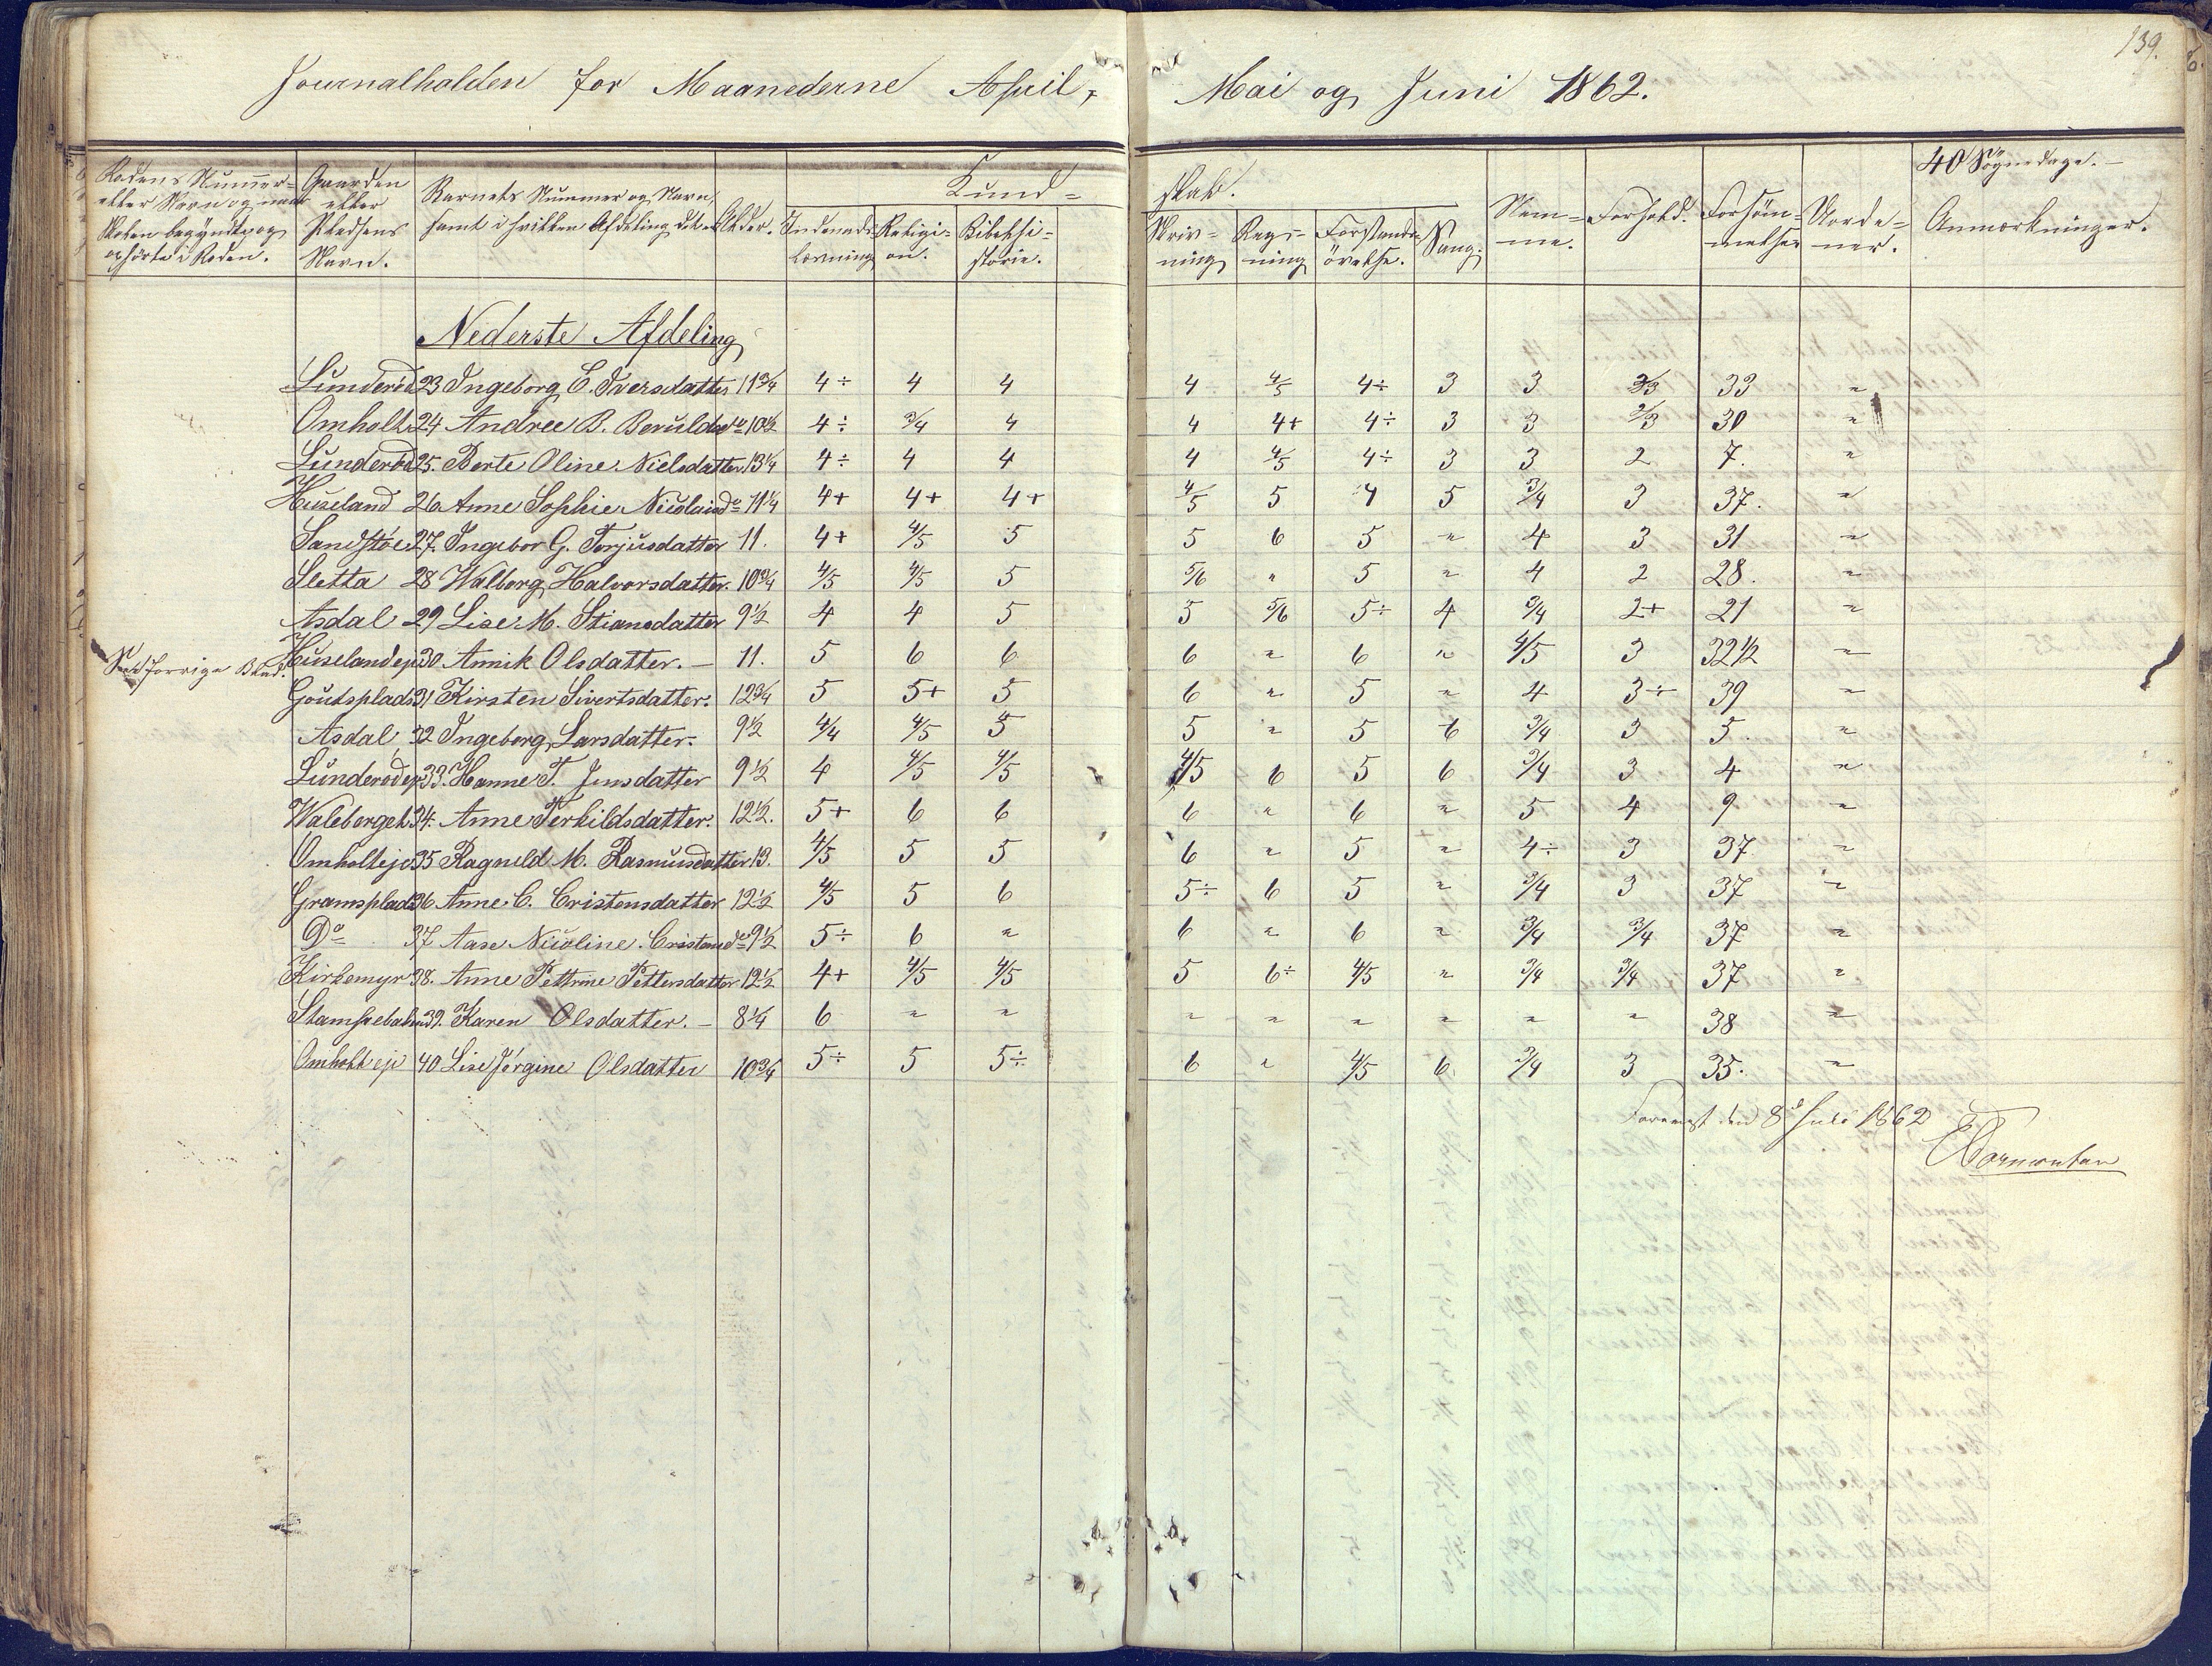 139.
Journalholden for Maanederne April, Mai og Juni 1862.
40 Søgnedage. –
Rodens Nummer eller Navn og naar Skolen begyndte og ophörte i Roden.
Gaarden eller Pladsens Navn.
Barnets Nummer og Navn, samt i hvilken Afdeling det er
Alder.
Kund= skab.
Indenads- læsning
Religi- on.
Bibelhi- storie.
Skriv- ning
Regn- ning
Forstands- övelse.
Sang.
Nem- me.
Forhold.
Forsöm- melser
Anmærkninger.
Nederste Afdeling
Lunderöd 23 Ingeborg C. Iversdatter 11 3/4 4÷ 4 4 4 4/5 4÷ 3 3 2/3 33 "
Omholt 24 Andree B. Berulds do 10 1/2 4÷ 3/4 4 4 4+ 4÷ 3 3 2/3 30 "
Lunderöd 25. Berte Oline Nielsdatter 13 1/4 4÷ 4 4 4 4/5 4÷ 3 3 2 7. "
Huseland 26 Anne Sophie Nicolaisdo 11 1/4 4+ 4+ 4+ 4/5 5 4 5 3/4 3 37. "
Sandstöe 27. Ingebor G. Terjusdatter 11. 4+ 4/5 5 5 6 5 " 4 3 31 "
Sletta 28 Walborg Halvorsdatter. 10 3/4 4/5 4/5 5 5/6 " 5 " 4 2 28. "
Asdal 29 Lise M. Stiansdatter 9 1/2 4 4 5 5 5/6 5÷ 4 3/4 2+ 21 "
forrige Blad. Huseland ej 30 Annik Olsdatter. – 11. 5 6 6 6 " 6 " 4/5 3 32 1/2 "
Goutsplads 31 Kirsten Sivertsdatter. 12 3/4 5 5+ 5 6 " 5 " 4 3÷ 39 "
Asdal 32 Ingeborg Larsdatter. 9 1/2 4/4 4/5 5 5 " 5 6 3/4 3 5. "
Lunderöd ej 33. Hanne T. Jensdatter 9 1/2 4 4/5 4/5 4/5 6 5 6 3/4 3 4 "
34. Anne Terkildsdatter. 12 1/2. 5+ 6 6 6 " 6 " 5 4 9 "
Omholt ej 35 Ragnild M. Rasmusdatter 13. 4/5 5 5 6 " 5 " 4÷ 3 37. "
Gramsplads 36 Anne C. Cristensdatter 12 1/2 4/5 5 6 5÷ 6 5 " 3/4 3 37 "
Do 37 Aase Nicoline Cristensdo 9 1/2 5÷ 6 " 6 " 6 " 3/4 3/4 37 "
Kirkemyr 38. Anne Pettrine Pettersdatter 12 1/2 4+ 4/5 4/5 5 6÷ 4/5 " 3/4 3/4 37 "
39. Karen Olsdatter. – 8 1/4 6 " " " " " " " " 38 "
Omholt ej 40 Lise Jörgine Olsdatter 10 3/4 5÷ 5 5÷ 6 " 4/5 6 3/4 3 35. "
Forevist den 8d Juli 1862